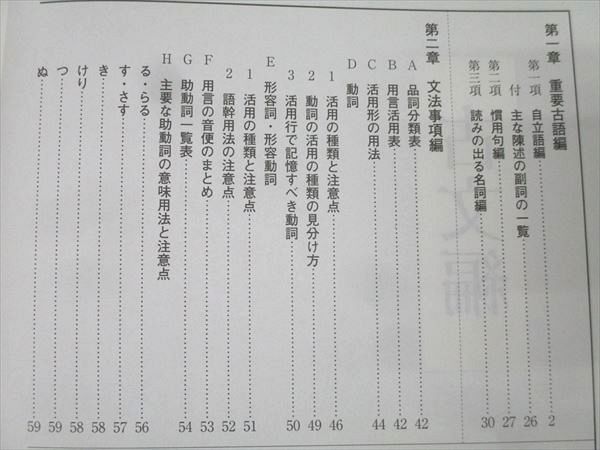 第一章 重要古語編
第一項 自立語編 2
付 主な陳述の副詞の一覧 26
第二項 慣用句編 27
第三項 読みの出る名詞編 30
第二章 文法事項編
A 品詞分類表 42
B 用言活用表 42
C 活用形の用法 44
D 動詞
1 活用の種類と注意点 46
2 動詞の活用の種類の見分け方 49
3 活用行で記憶すべき動詞 50
E 形容詞・形容動詞
1 活用の種類と注意点 51
2 語幹用法の注意点 52
F 用言の音便のまとめ 53
G 助動詞一覧表 54
H 主要な助動詞の意味用法と注意点
る・らる 56
す・さす 57
き 58
けり 58
つ 59
ぬ 59